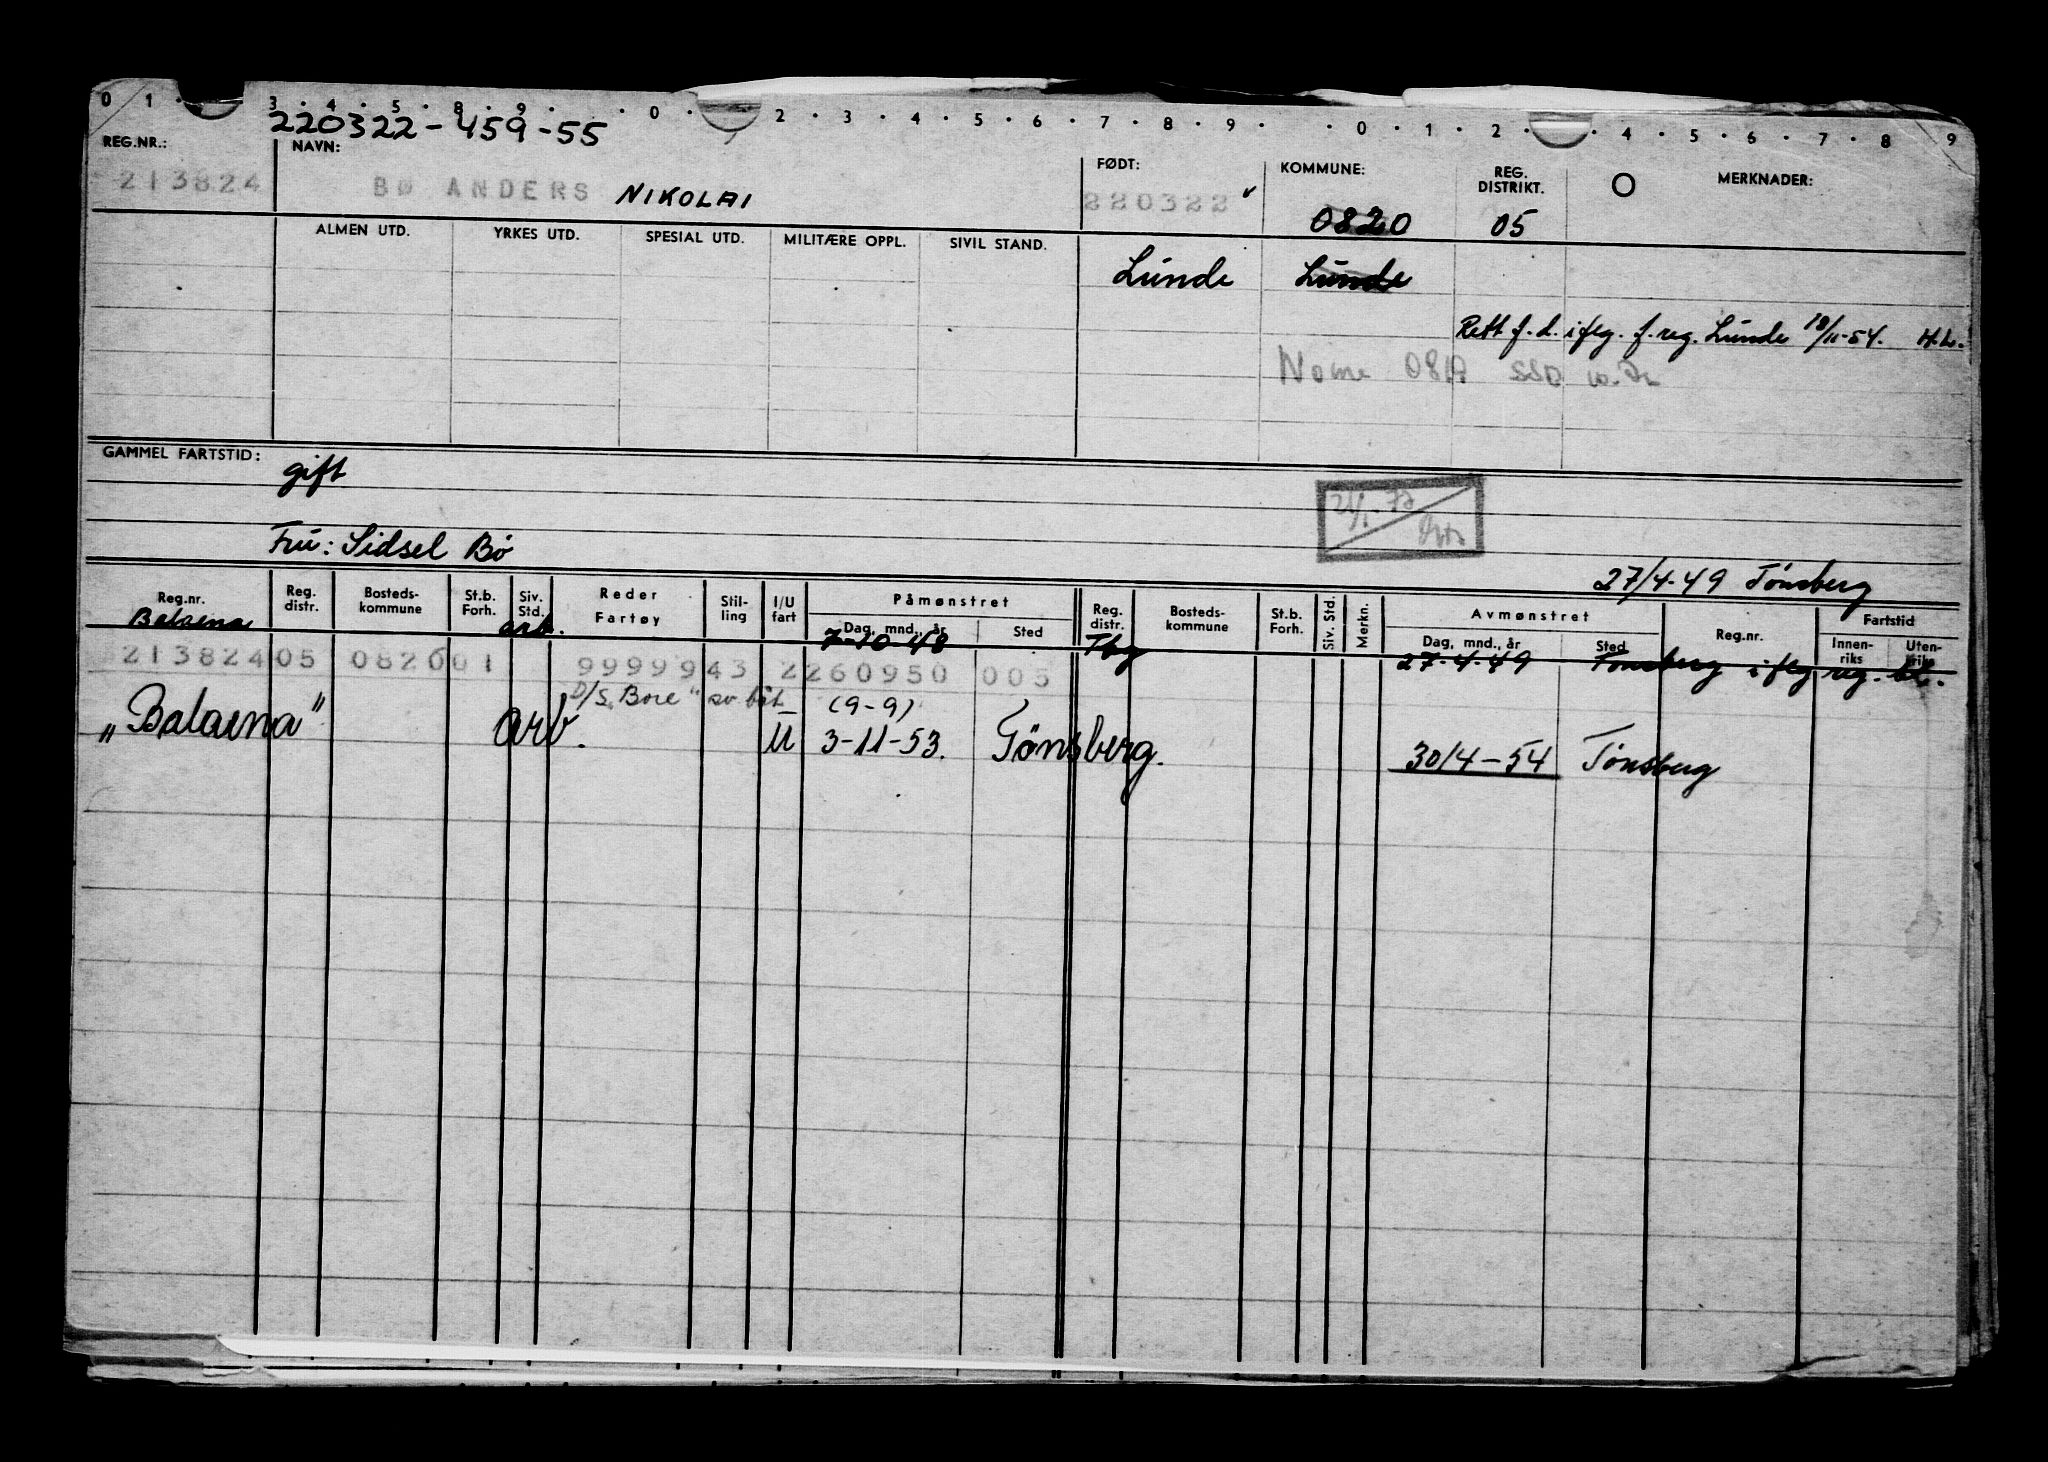 0 1 · 3 · 4 · 5 · 8 · 9 · · 0 · · 2 · 3 · 4 · 5 · 6 · 7 · 8 · 9 · · 0 · 1 · 2 · · 4 · 5 · 6 · 7 · 8 9
220322-459-55
REG.NR.: NAVN: FØDT: KOMMUNE: REG. DISTRIKT. O MERKNADER:
213824 BØ ANDERS NIKOLAI 220322 0820 05
ALMEN UTD. YRKES UTD. SPESIAL UTD. MILITÆRE OPPL. SIVIL STAND.
Lunde Lunde
Rett f. d. i flg. f. reg. Lunde 18/11-54. H.L.
Nome
GAMMEL FARTSTID:
gift
21/1-72
Fru: Sidsel Bø
27/4-49 Tönsberg
Reg.nr. Reg. distr. Bosteds-kommune St.b. Forh. Siv. Std. Reder Fartøy Stil-ling I/U fart Påmønstret Dag, mnd., år Sted Reg. distr. Bosteds-kommune St.b. Forh. Siv. Std. Merkn. Avmønstret Dag, mnd., år Sted Reg.nr. Fartstid Innen-riks Uten-riks
Balaena arb. 7-10-48 Tbg 27-4-49 Tönsberg i flg reg. bl.
213824 05 0820 01 9999943 2 260950 005
D/S "Bore" sv båt (9-9)
„Balaena" arb. U 3-11-53. Tönsberg. 30/4-54 Tönsberg